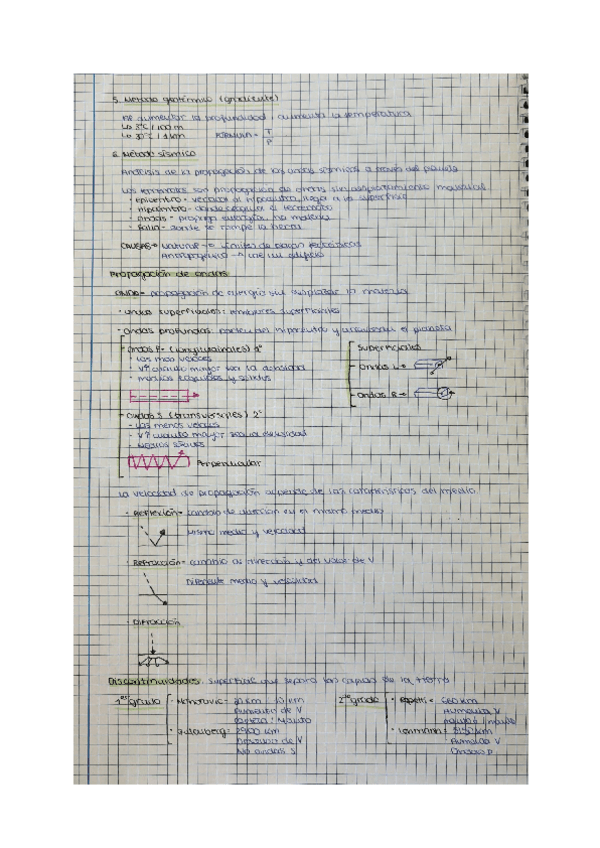 5. Método geotérmico (gradiente)
Al aumentar la profundidad, aumenta la temperatura
↳ 3°C / 100 m
↳ 30°C / 1 km
T
P
6. Método sísmico
Análisis de la propagación de las ondas sísmicas a través del planeta
Los terremotos son propagación de ondas sin desplazamiento material
• epicentro =
• hipocentro = donde se
• ondas =
• falla = donde se rompe la tierra
CAUSAS → Natural → límites de placas tectónicas
Antropogénico →
Propagación de ondas
onda = propagación de energía sin desplazar la materia
• ondas superficiales:
• ondas profundas: nacen del hipocentro y atraviesan el planeta
- ondas P = (longitudinales) 1º
• las más veloces
• V↑ cuanto mayor sea la densidad
• medios líquidos y sólidos
- ondas S (transversales) 2º
• las menos veloces
• V↑ cuanto mayor sea la densidad
• medios sólidos
Perpendicular
Superficiales
- Ondas L →
- Ondas R →
La velocidad de propagación depende de las características del medio
• Reflexión = cambio de dirección en el mismo medio
mismo medio y velocidad
• Refracción = cambio de dirección y del valor de V
Diferente medio y velocidad
• Difracción
Discontinuidades: superficie que separa las capas de la Tierra
1er grado
• Mohorovic =
Aumento de V
corteza / manto
• Gutenberg = 2900 km
Descenso de V
No ondas S
2do grado
• Repetti = 660 km
Aumenta V
manto / manto
• Lehmann =
Aumenta V
Ondas P